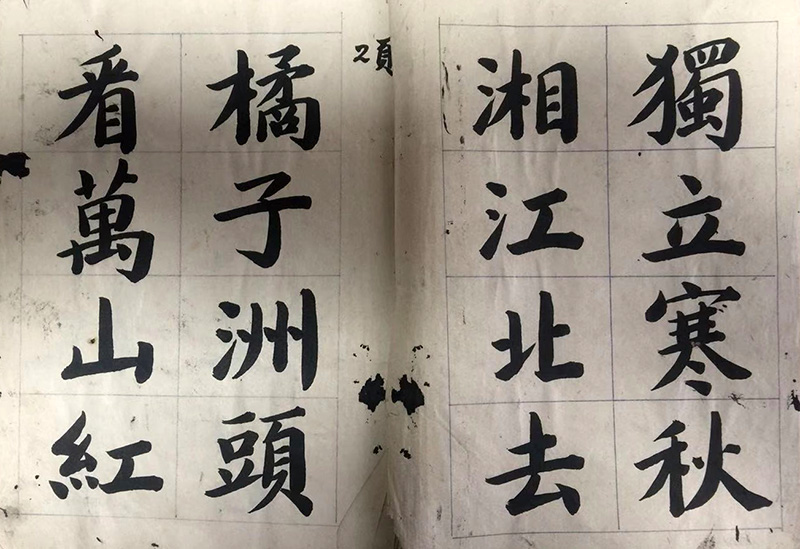 獨立寒秋
湘江北去
2頁
橘子洲頭
看萬山紅